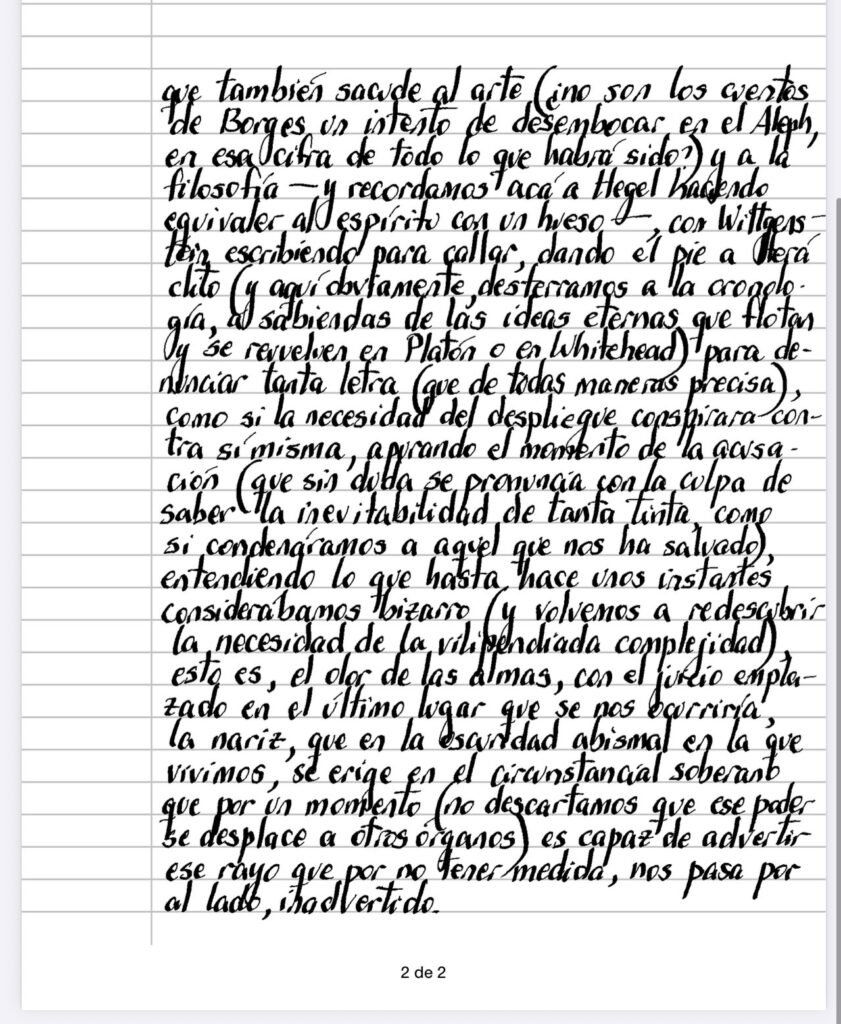 que también sacude al arte (¿no son los cuentos
de Borges un intento de desembocar en el Aleph,
en esa cifra de todo lo que habrá sido?) y a la
filosofía —y recordamos acá a Hegel haciendo
equivaler al espíritu con un hueso—, con Wittgens-
tein escribiendo para callar, dando el pie a Herá
clito (y aquí obviamente, desterramos a la cronolo-
gía, a sabiendas de las ideas eternas que flotan
y se revuelven en Platón o en Whitehead) para de-
nunciar tanta letra (que de todas maneras precisa),
como si la necesidad del despliegue conspirara con-
tra sí misma, apurando el momento de la acusa-
ción (que sin duda se pronuncia con la culpa de
saber la inevitabilidad de tanta tinta, como
si condenáramos a aquel que nos ha salvado),
entendiendo lo que hasta hace unos instantes
considerábamos bizarro (y volvemos a redescubrir
la necesidad de la vilipendiada complejidad),
esto es, el olor de las almas, con el juicio empla-
zado en el último lugar que se nos ocurriría,
la nariz, que en la oscuridad abismal en la que
vivimos, se erige en el circunstancial soberano
que por un momento (no descartamos que ese poder
se desplace a otros órganos) es capaz de advertir
ese rayo que por no tener medida, nos pasa por
al lado, inadvertido.
2 de 2